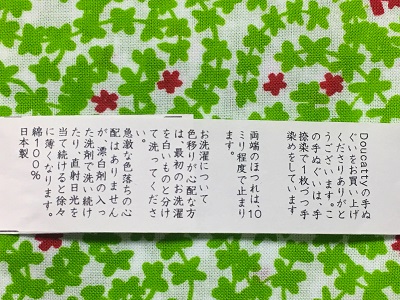 Doucattyの手ぬ
ぐいをお買い上げ
くださりありがと
うございます。こ
の手ぬぐいは、手
捺染で1枚づつ手
染めをしています
両端のほつれは、10
ミリ程度で止まり
ます。
お洗濯について
色移りが心配な方
は、最初のお洗濯
を白いものと分け
て洗ってくださ
い。
急激な色落ちの心
配はありません
が、漂白剤の入っ
た洗剤で洗い続け
たり、直射日光を
当て続けると徐々
に薄くなります。
綿100%
日本製